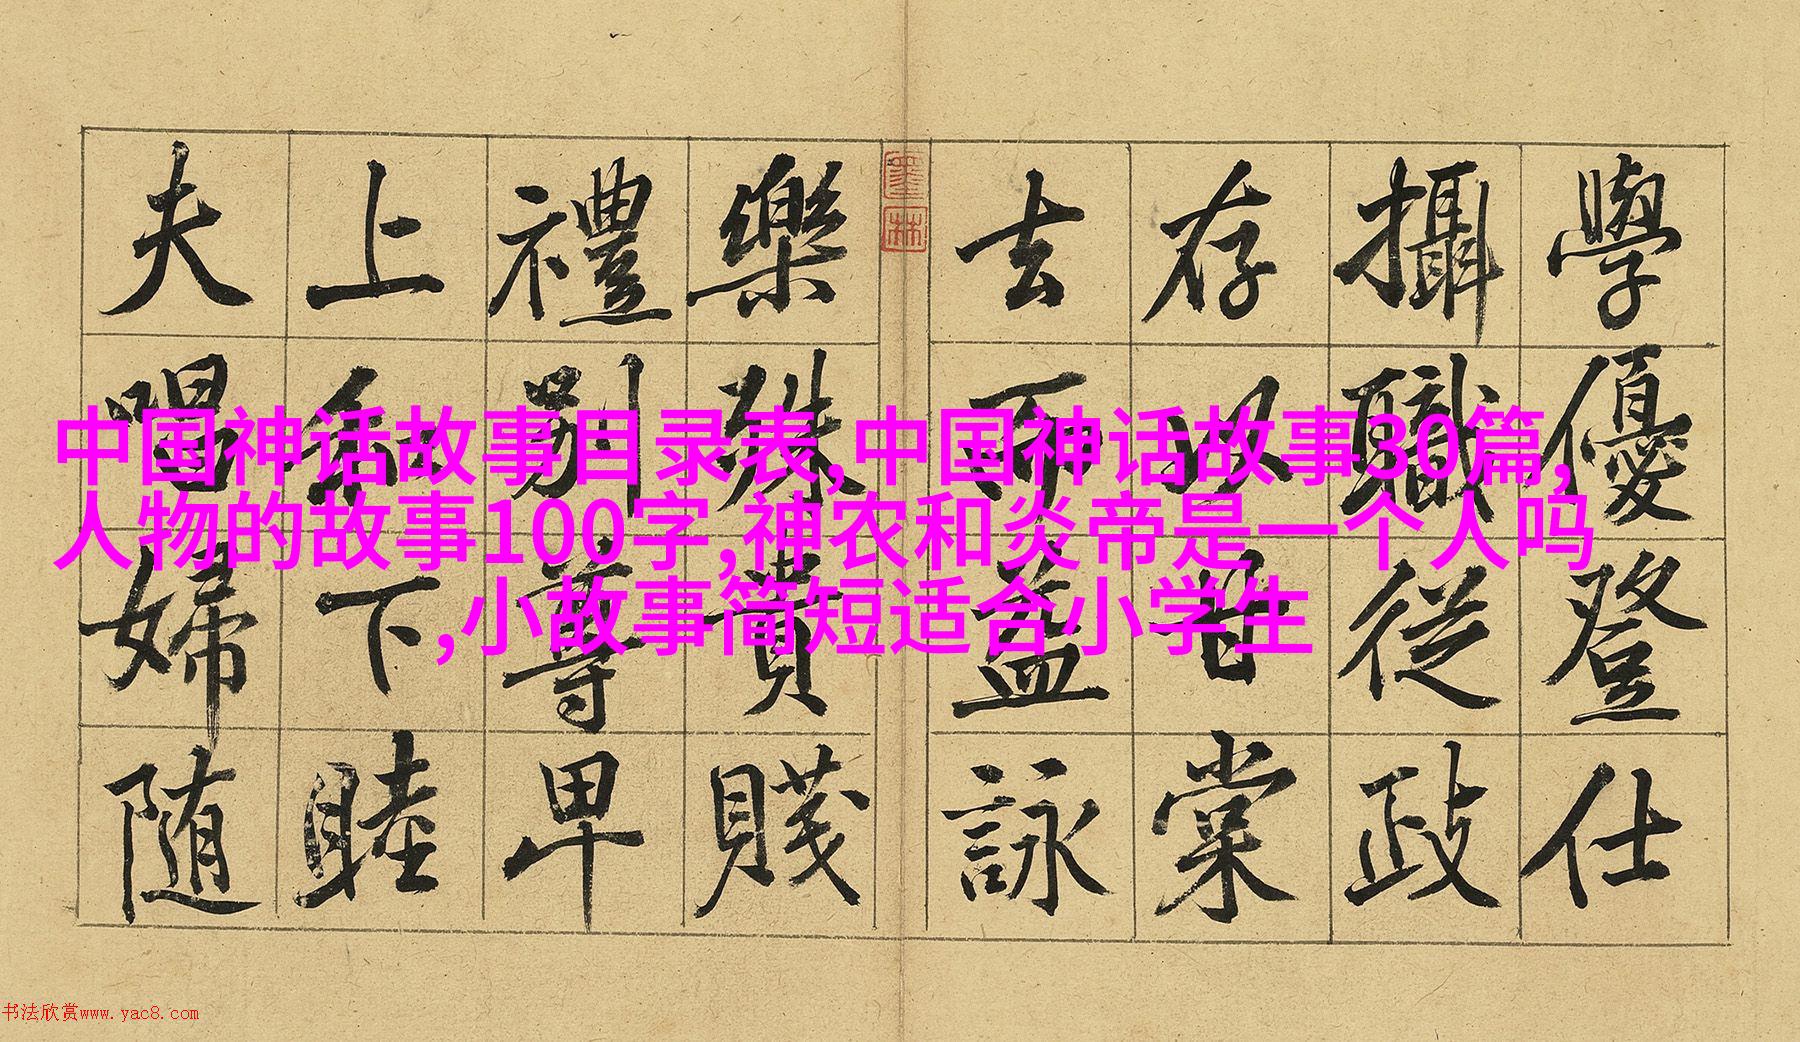 學優登仕
攝職從政
存以甘棠
去而益詠
樂殊貴賤
禮別尊卑
上和下睦
夫唱婦随
墨林
中国神话故事目录表,中国神话故事30篇,
人物的故事100字,神农和炎帝是一个人吗
,小故事简短适合小学生
书法欣赏www.yac8.com